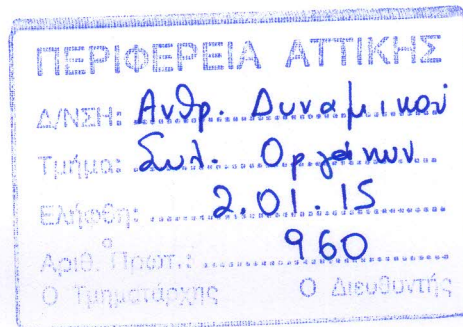 ΠΕΡΙΦΕΡΕΙΑ ΑΤΤΙΚΗΣ
Δ/ΝΣΗ: Ανθρ. Δυναμικού
Τμήμα: Συλ. Οργάνων
Ελήφθη: 2.01.15
Αριθ. Πρωτ.: 960
Ο Τμηματάρχης Ο Διευθυντής